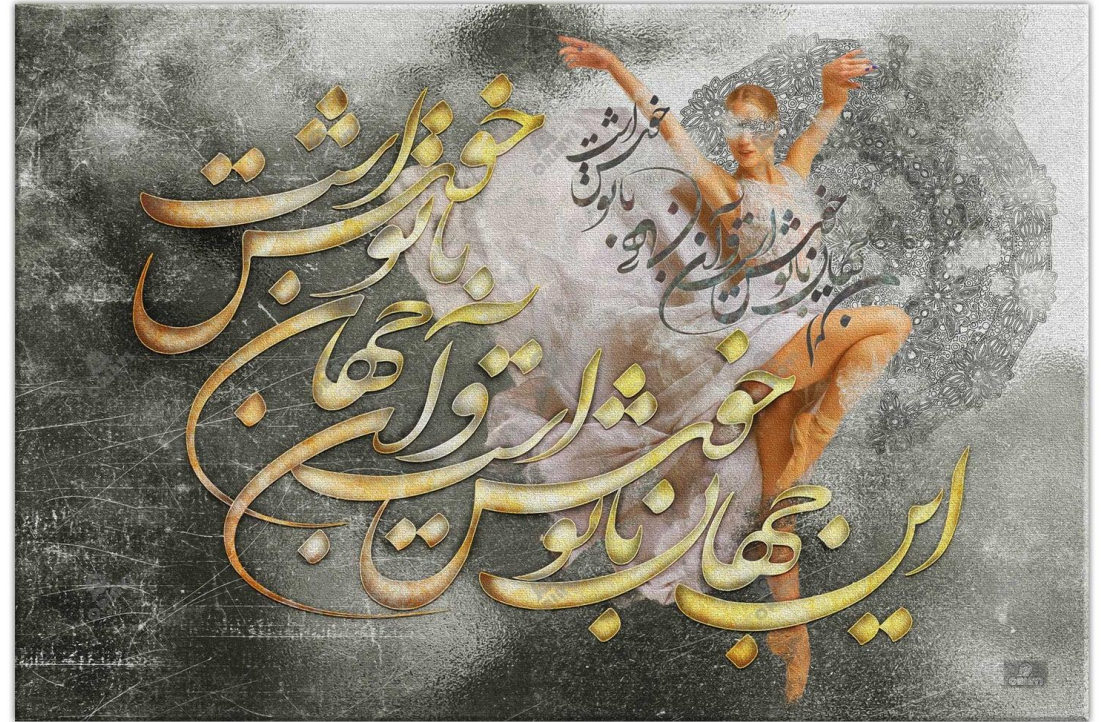 این جهان با تو خوش است
و آن جهان با تو خوش است
این جهان با تو خوش است
و آن جهان با تو خوش است